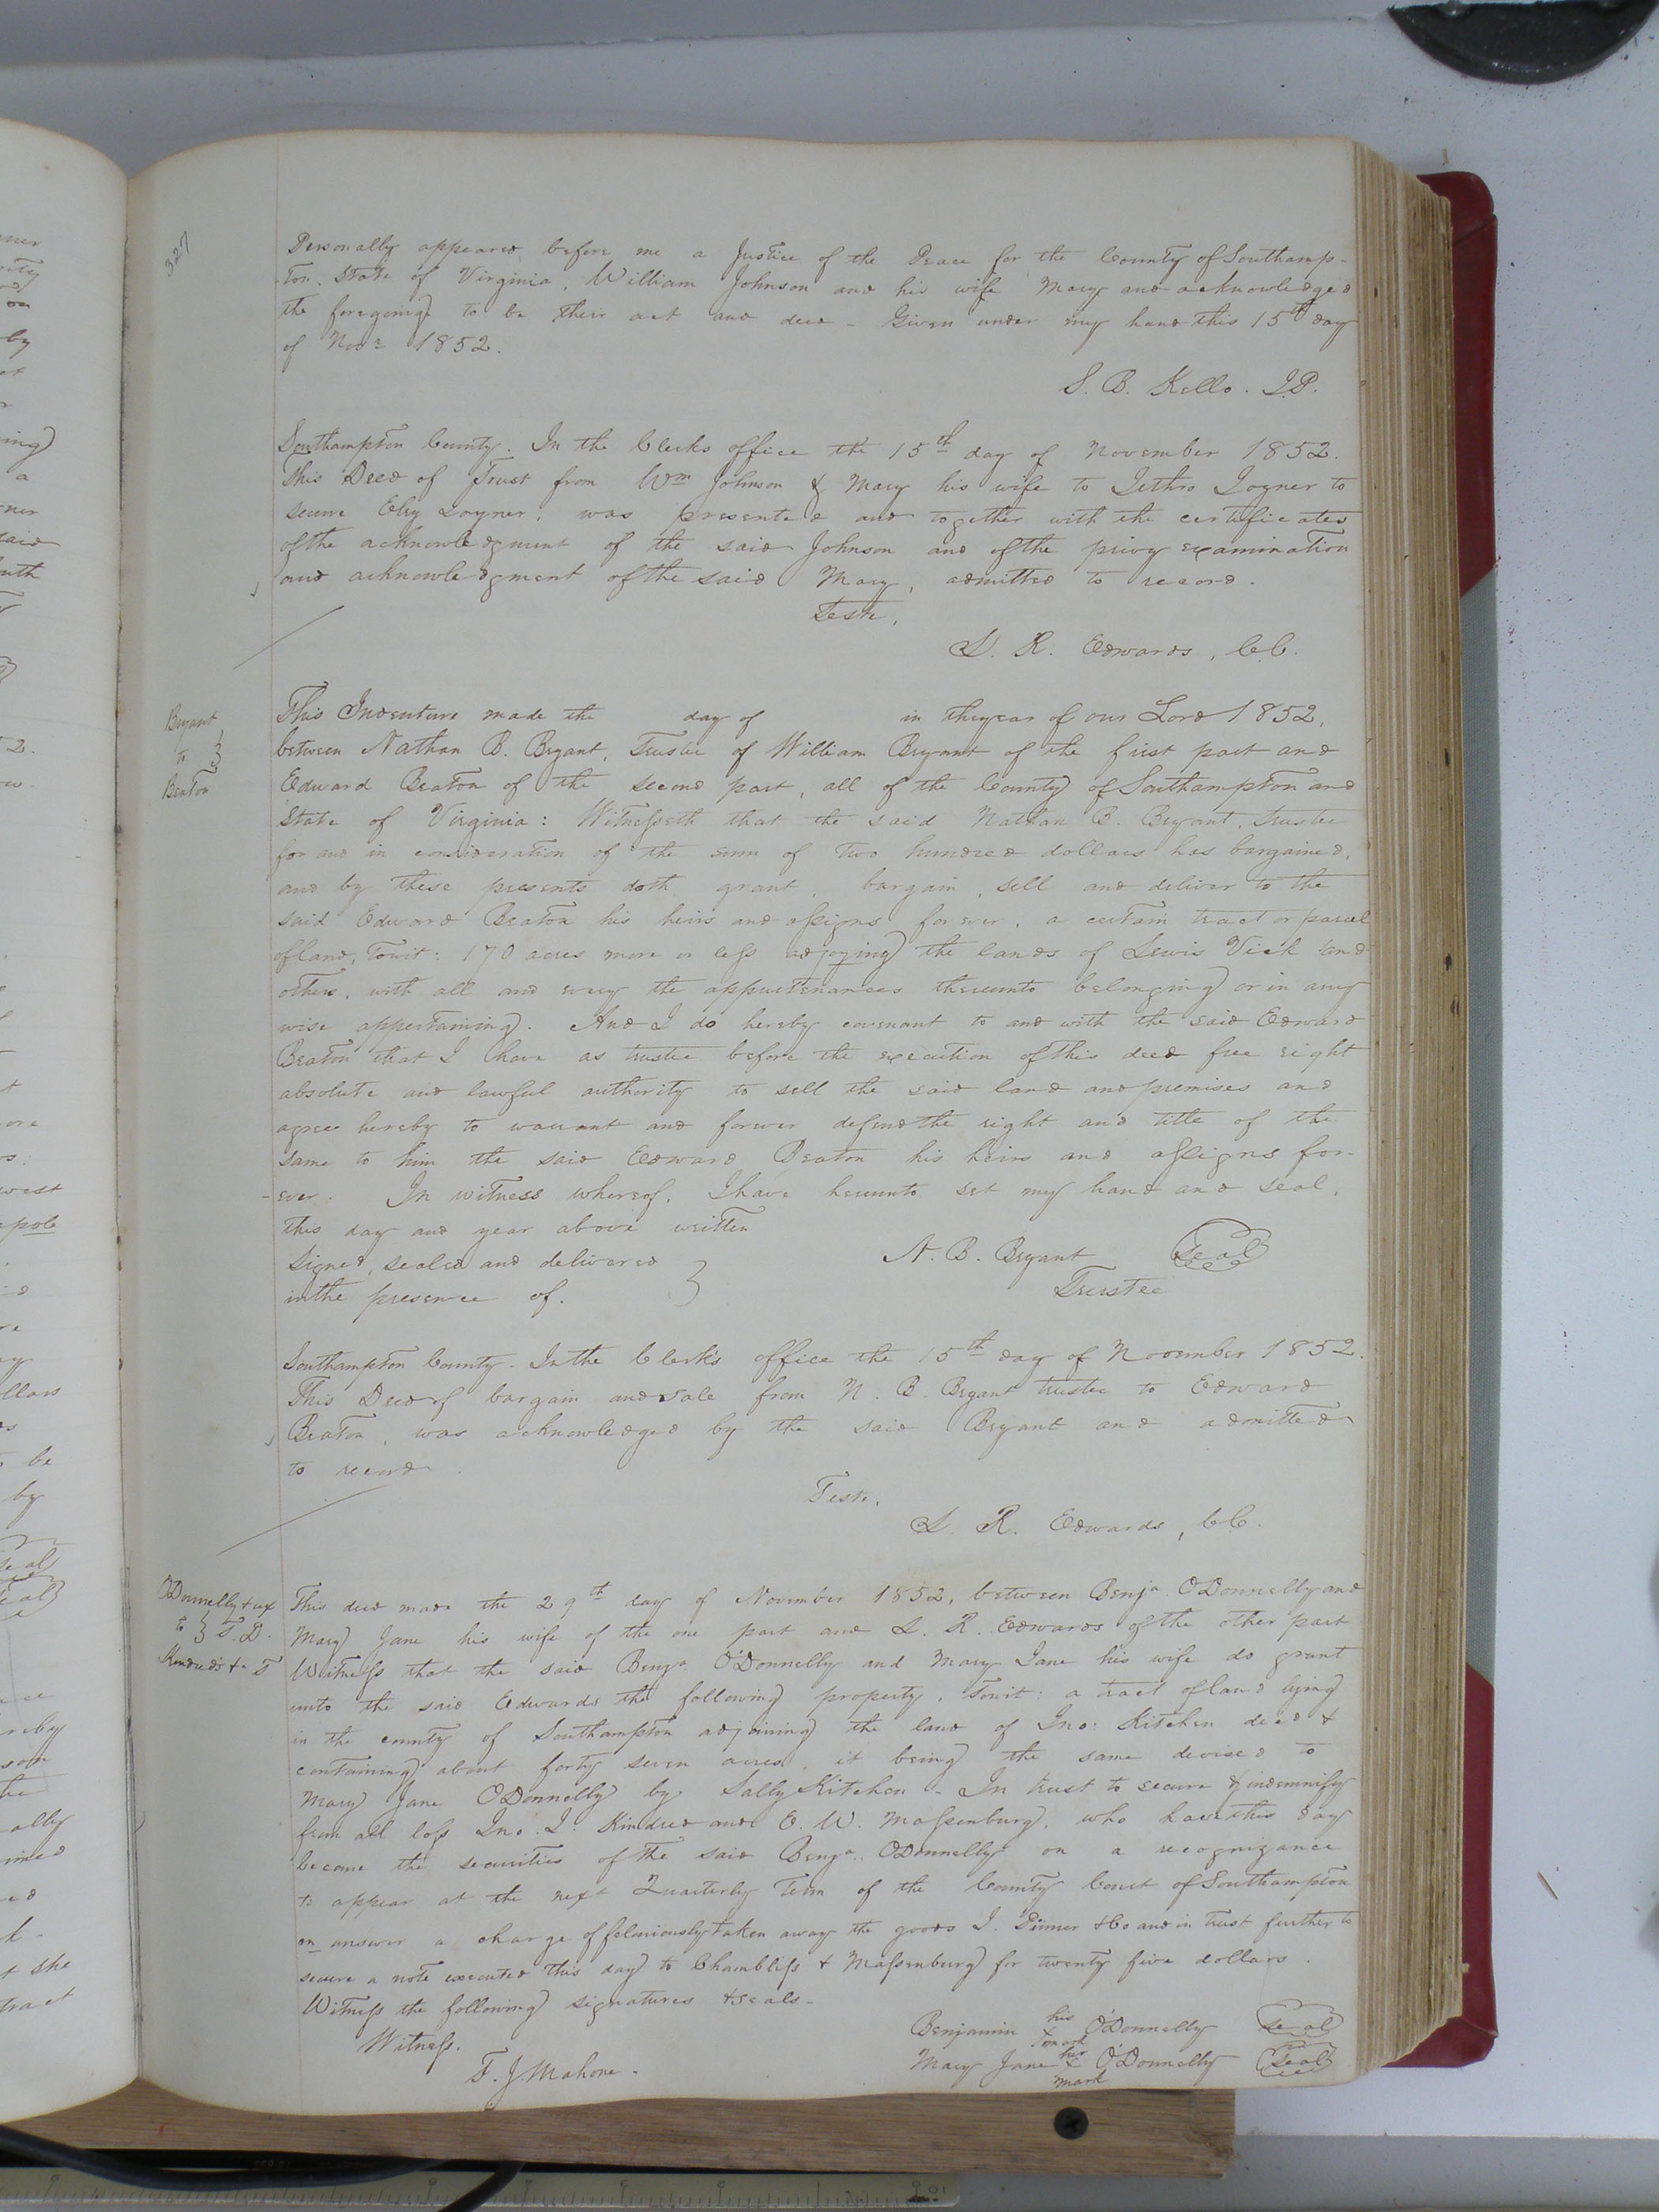 327
Personally appeared before me a Justice of the Peace for the County of Southamp-
-ton. State of Virginia, William Johnson and his wife Mary and acknowledged
the foregoing to be their act and deed - Given under my hand this 15th day
of Novr 1852.
S. B. Kello. J.P.
Southampton County. In the Clerks office the 15th day of November 1852.
This Deed of Trust from Wm Johnson & Mary his wife to Jethro Joyner to
secure Joyner, was presented and together with the certificates
of the acknowledgment of the said Johnson and of the privy examination
and acknowledgment of the said Mary, admitted to record.
Teste,
L. R. Edwards, C.C.
Bryant
to
Beaton
This Indenture made the day of in the year of our Lord 1852,
between Nathan B. Bryant, Trustee of William Bryant of the first part and
Edward Beaton of the second part, all of the County of Southampton and
State of Virginia: Witnesseth that the said Nathan B. Bryant, trustee
for and in consideration of the sum of two hundred dollars has bargained,
and by these presents doth grant, bargain, sell and deliver to the
said Edward Beaton his heirs and assigns forever, a certain tract or parcel
of land, Towit: 170 acres more or less adjoying the lands of Lewis Vick and
others, with all and every the appurtenances thereunto belonging or in any
wise appertaining. And I do hereby covenant to and with the said Edward
Beaton that I have as trustee before the execution of this deed free right
absolute and lawful authority to sell the said land and premises and
agree hereby to warrant and forever defend the right and title of the
same to him the said Edward Beaton his heirs and assigns for-
-ever. In witness whereof, I have hereunto set my hand and seal,
this day and year above written
Signed, sealed and delivered
in the presence of.
N. B. Bryant Seal
Trustee
Southampton County. In the Clerk's office the 15th day of November 1852.
This Deed of bargain and sale from N. B. Bryant trustee to Edward
Beaton, was acknowledged by the said Bryant and admitted
to record.
Teste,
L. R. Edwards, C.C.
O'Donnelly & ux
to T. D.
Kindred's T
This deed made the 29th day of November 1852, between Benja O'Donnelly and
Mary Jane his wife of the one part and L. R. Edwards of the other part
Witness that the said Benja O'Donnelly and Mary Jane his wife do grant
unto the said Edwards the following property, Towit: a tract of land lying
in the county of Southampton adjoining the land of Jno: Kitchen decd &
containing about forty seven acres, it being the same devised to
Mary Jane O'Donnelly by Sally Kitchen - In trust to secure & indemnify
from all loss Jno. J. Kindred and E. W. Massenburg, who have this day
become the securities of the said Benja. O'Donnelly on a recognizance
to appear at the next Quarterly Term of the County Court of Southampton
answer a charge of feloniously taken away the goods J. & Co and in trust further to
secure a note executed this day to Chambliss & Massenburg for twenty five dollars.
Witness the following signatures & seals -
Witness.
T. J. Mahone.
Benjamin his x mark O'Donnelly Seal
Mary Jane her x mark O'Donnelly Seal